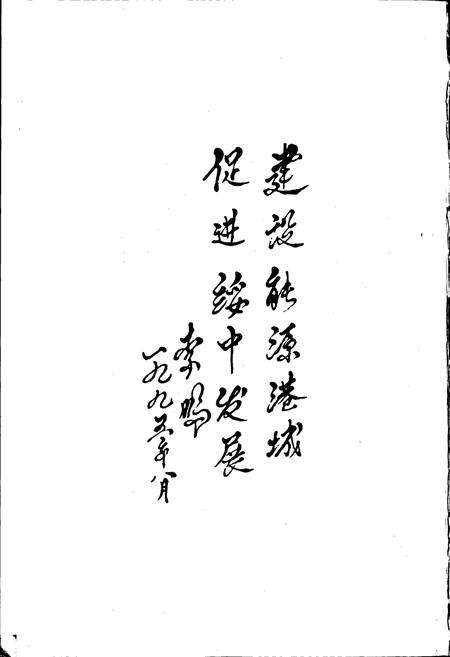 建设能源港城
促进绥中发展
李鹏
一九九五年八月